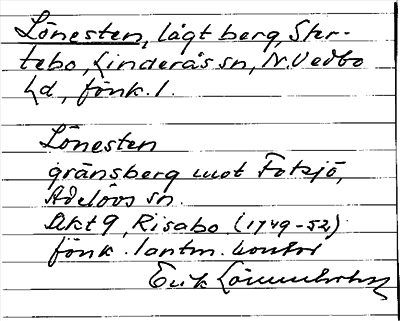 Lönesten, lågt berg, Stor-
tebo, Linderås sn, N. Vedbo
hd, jönk. l.
Lönesten
gränsberg mot Fotsjö,
Adelövs sn.
Akt 9, Risabo (1749-52)
jönk. lantm. kontor
Erik